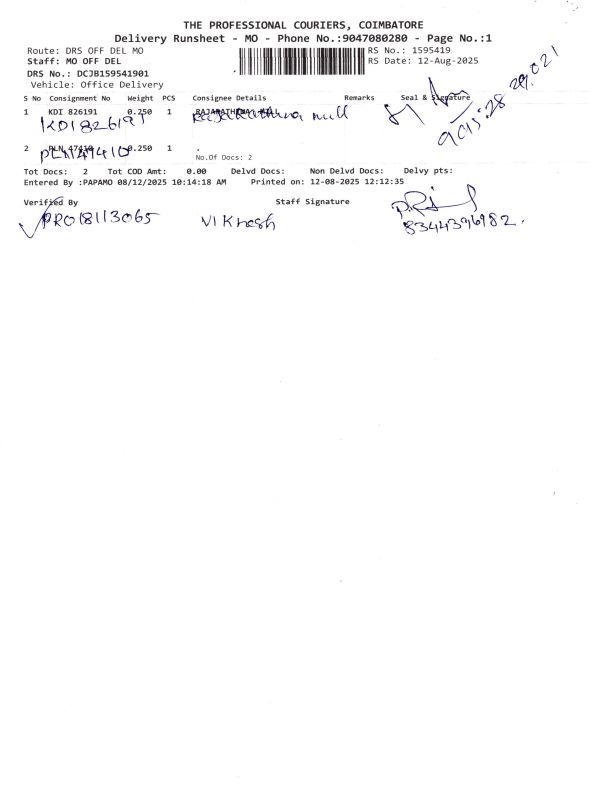 THE PROFESSIONAL COURIERS, COIMBATORE
Delivery Runsheet - MO - Phone No.:9047080280 - Page No.:1
Route: DRS OFF DEL MO RS No.: 1595419
Staff: MO OFF DEL RS Date: 12-Aug-2025
DRS No.: DCJB159541901
Vehicle: Office Delivery
S No Consignment No Weight PCS Consignee Details Remarks Seal & Signature
1 KDI 826191 0.250 1 RAJARATHINA MILL
KDI 826191 Rajarathina mill
2 PLN 47410 0.250 1 .
PLN 47410
No.Of Docs: 2
Tot Docs: 2 Tot COD Amt: 0.00 Delvd Docs: Non Delvd Docs: Delvy pts:
Entered By :PAPAMO 08/12/2025 10:14:18 AM Printed on: 12-08-2025 12:12:35
Verified By Staff Signature
PRO18113065 Viknesh 8344396982.